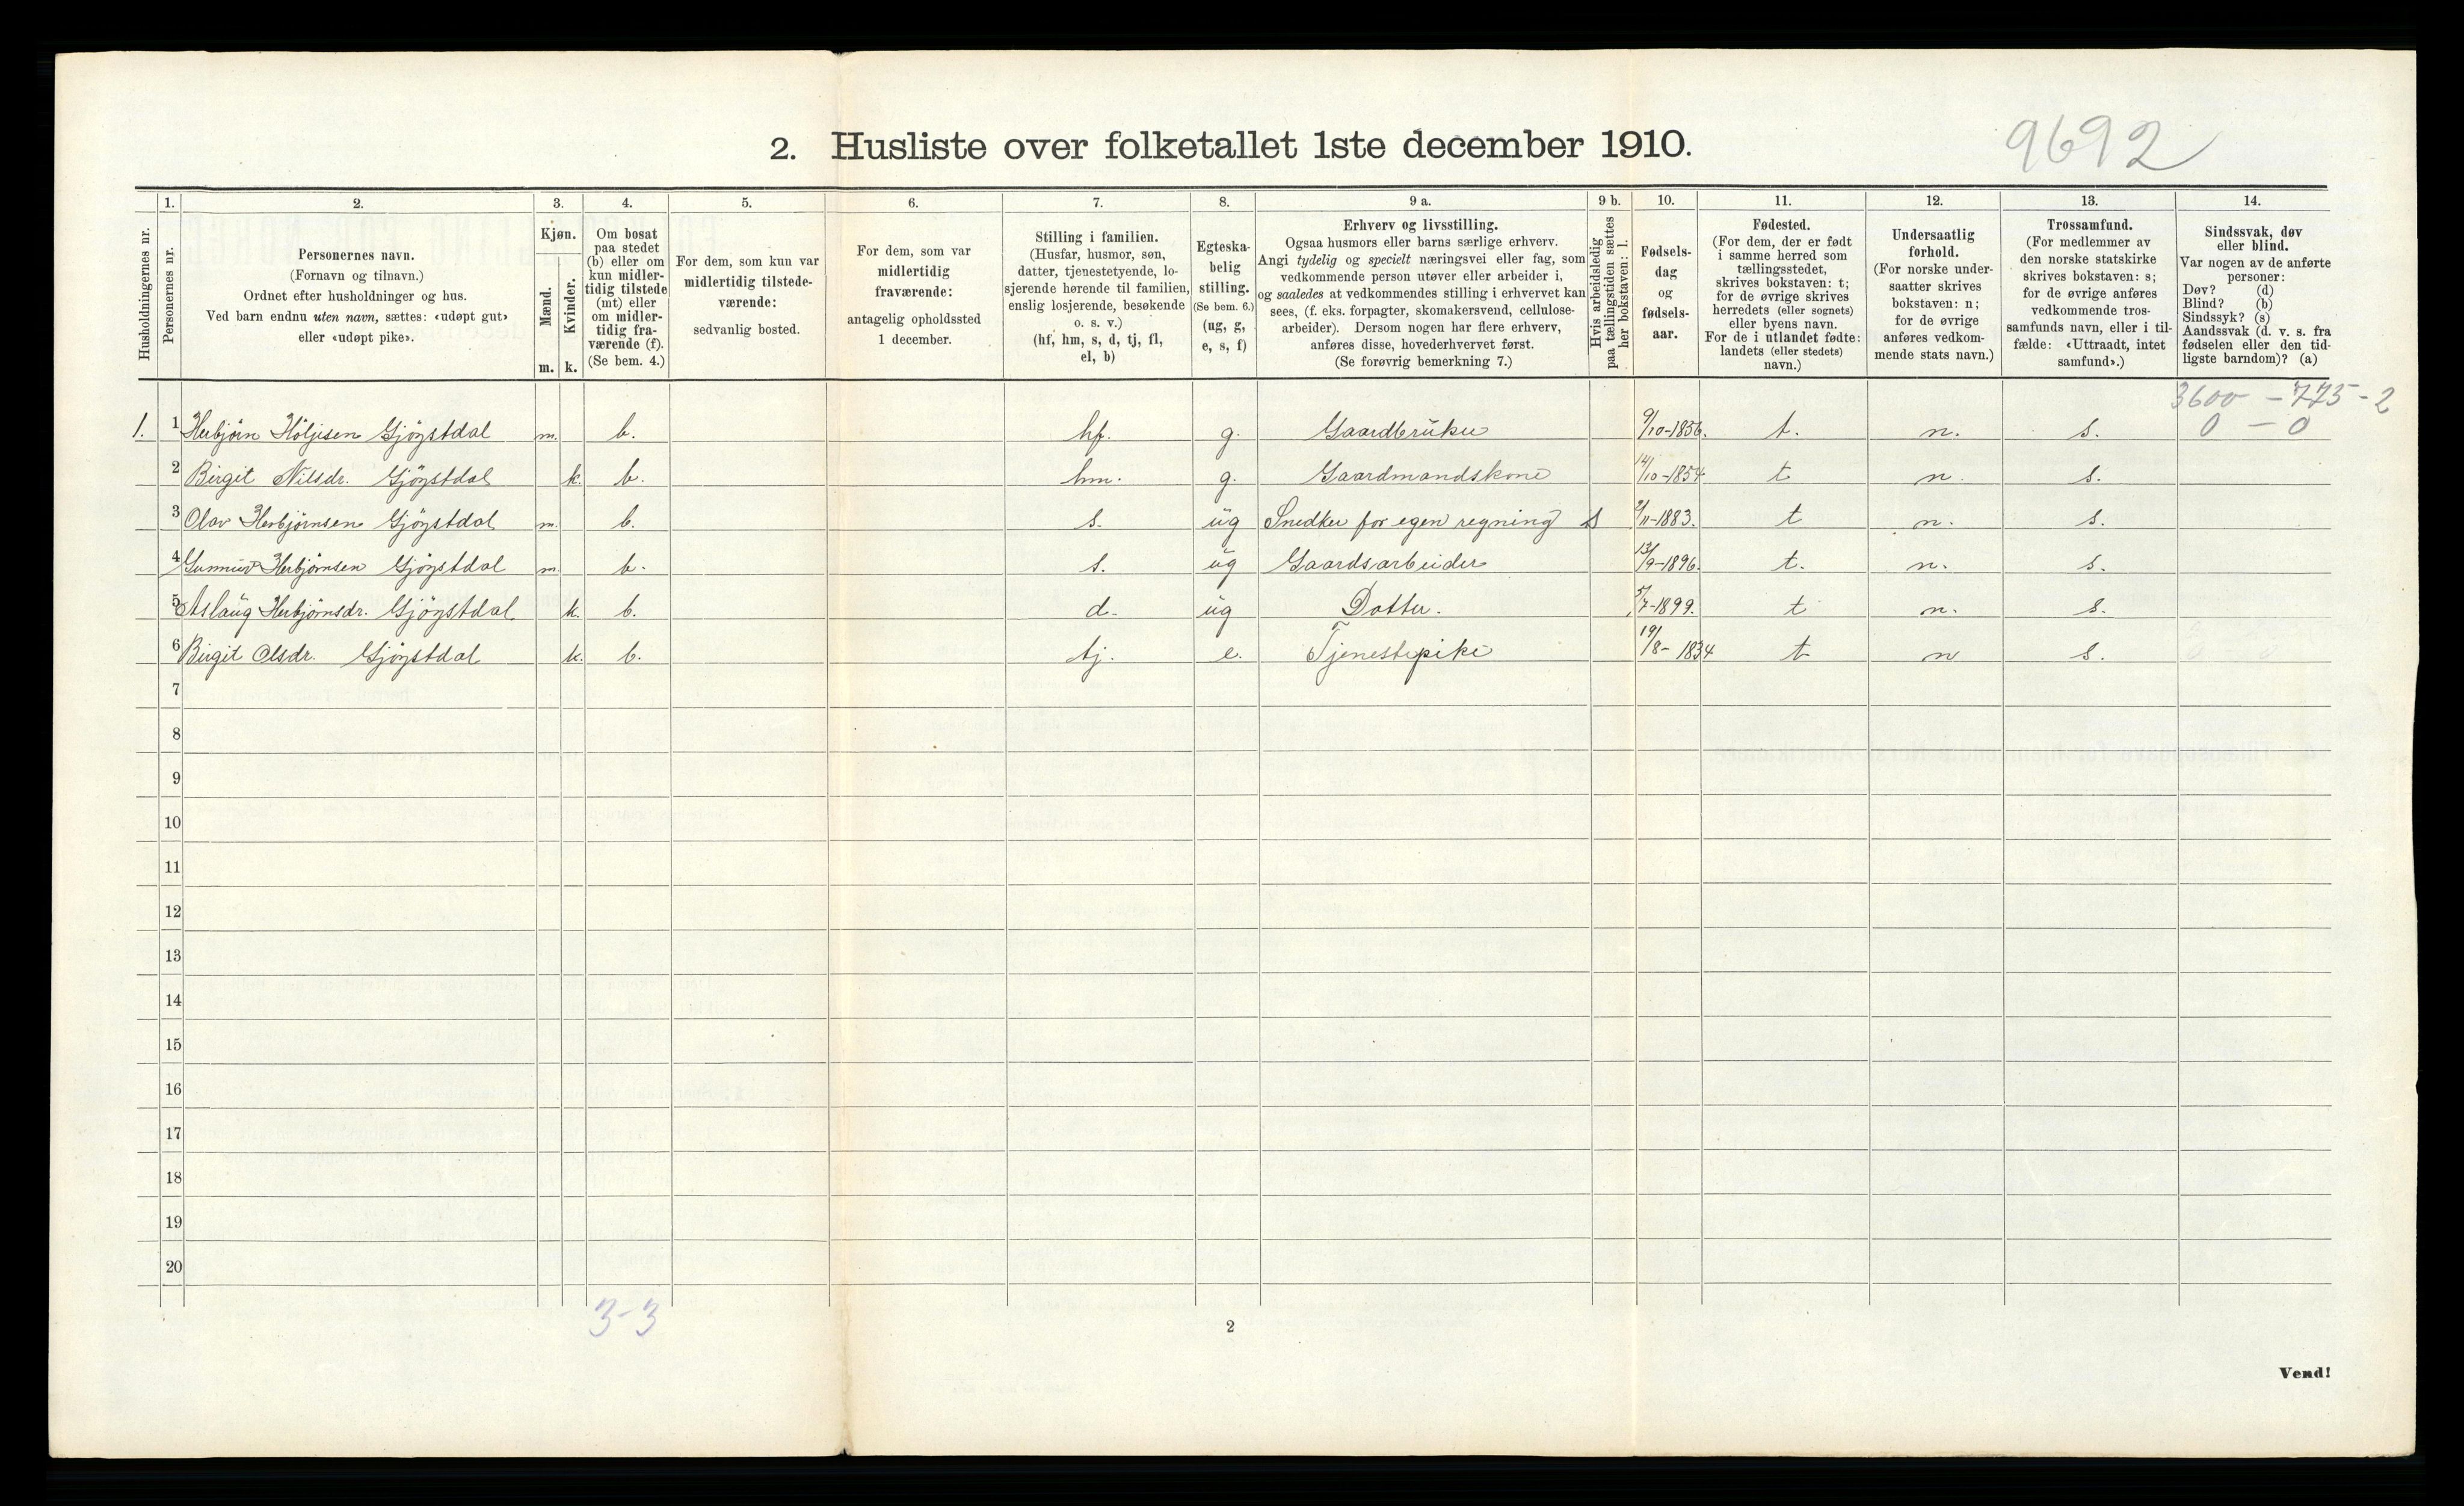 2. Husliste over folketallet 1ste december 1910.
9692
Husholdningernes nr.
1.
Personernes nr.
2.
Personernes navn.
(Fornavn og tilnavn.)
Ordnet efter husholdninger og hus.
Ved barn endnu uten navn, sættes: «udøpt gut»
eller «udøpt pike».
3.
Kjøn.
Mænd.
Kvinder.
m. k.
4.
Om bosat
paa stedet
(b) eller om
kun midler-
tidig tilstede
(mt) eller
om midler-
tidig fra-
værende (f).
(Se bem. 4.)
5.
For dem, som kun var
midlertidig tilstede-
værende:
sedvanlig bosted.
6.
For dem, som var
midlertidig
fraværende:
antagelig opholdssted
1 december.
7.
Stilling i familien.
(Husfar, husmor, søn,
datter, tjenestetyende, lo-
sjerende hørende til familien,
enslig losjerende, besøkende
o. s. v.)
(hf, hm, s, d, tj, fl,
el, b)
8.
Egteska-
belig
stilling.
(Se bem. 6.)
(ug, g,
e, s, f)
9 a.
Erhverv og livsstilling.
Ogsaa husmors eller barns særlige erhverv.
Angi tydelig og specielt næringsvei eller fag, som
vedkommende person utøver eller arbeider i,
og saaledes at vedkommendes stilling i erhvervet kan
sees, (f. eks. forpagter, skomakersvend, cellulose-
arbeider). Dersom nogen har flere erhverv,
anføres disse, hovederhvervet først.
(Se forøvrig bemerkning 7.)
9 b.
Hvis arbeidsledig
paa tællingstiden sættes
her bokstaven: l.
10.
Fødsels-
dag
og
fødsels-
aar.
11.
Fødested.
(For dem, der er født
i samme herred som
tællingsstedet,
skrives bokstaven: t;
for de øvrige skrives
herredets (eller sognets)
eller byens navn.
For de i utlandet fødte:
landets (eller stedets)
navn.)
12.
Undersaatlig
forhold.
(For norske under-
saatter skrives
bokstaven: n;
for de øvrige
anføres vedkom-
mende stats navn.)
13.
Trossamfund.
(For medlemmer av
den norske statskirke
skrives bokstaven: s;
for de øvrige anføres
vedkommende tros-
samfunds navn, eller i til-
fælde: «Uttraadt, intet
samfund».)
14.
Sindssvak, døv
eller blind.
Var nogen av de anførte
personer:
Døv? (d)
Blind? (b)
Sindssyk? (s)
Aandssvak (d. v. s. fra
fødselen eller den tid-
ligste barndom)? (a)
3600 - 775 - 2
1. 1 Herbjörn Höljesen Gjöystdal m. b. hf. g. Gaardbrüker 9/10-1856. t. n. s. 0 - 0
2 Birgit Nilsdr. Gjöystdal k. b. hm. g. Gaardmandskone 14/10-1854 t n. s.
3 Olav Herbjörnsen Gjöystdal m. b. s. üg Snedker for egen regning s /11-1883. t n. s.
4 Herbjörnsen Gjöystdal m b. s. üg Gaardsarbeider 13/9-1896. t. n. s.
5 Aslaüg Herbjörnsdr. Gjöystdal k. b. d. üg Datter. 5/7-1899. t n. s.
6 Birgit Olsdr. Gjöystdal k. b. tj. e. Tjenestepike 19/8-1834 t n s.
7
8
9
10
11
12
13
14
15
16
17
18
19
20
3-3
2
Vend!